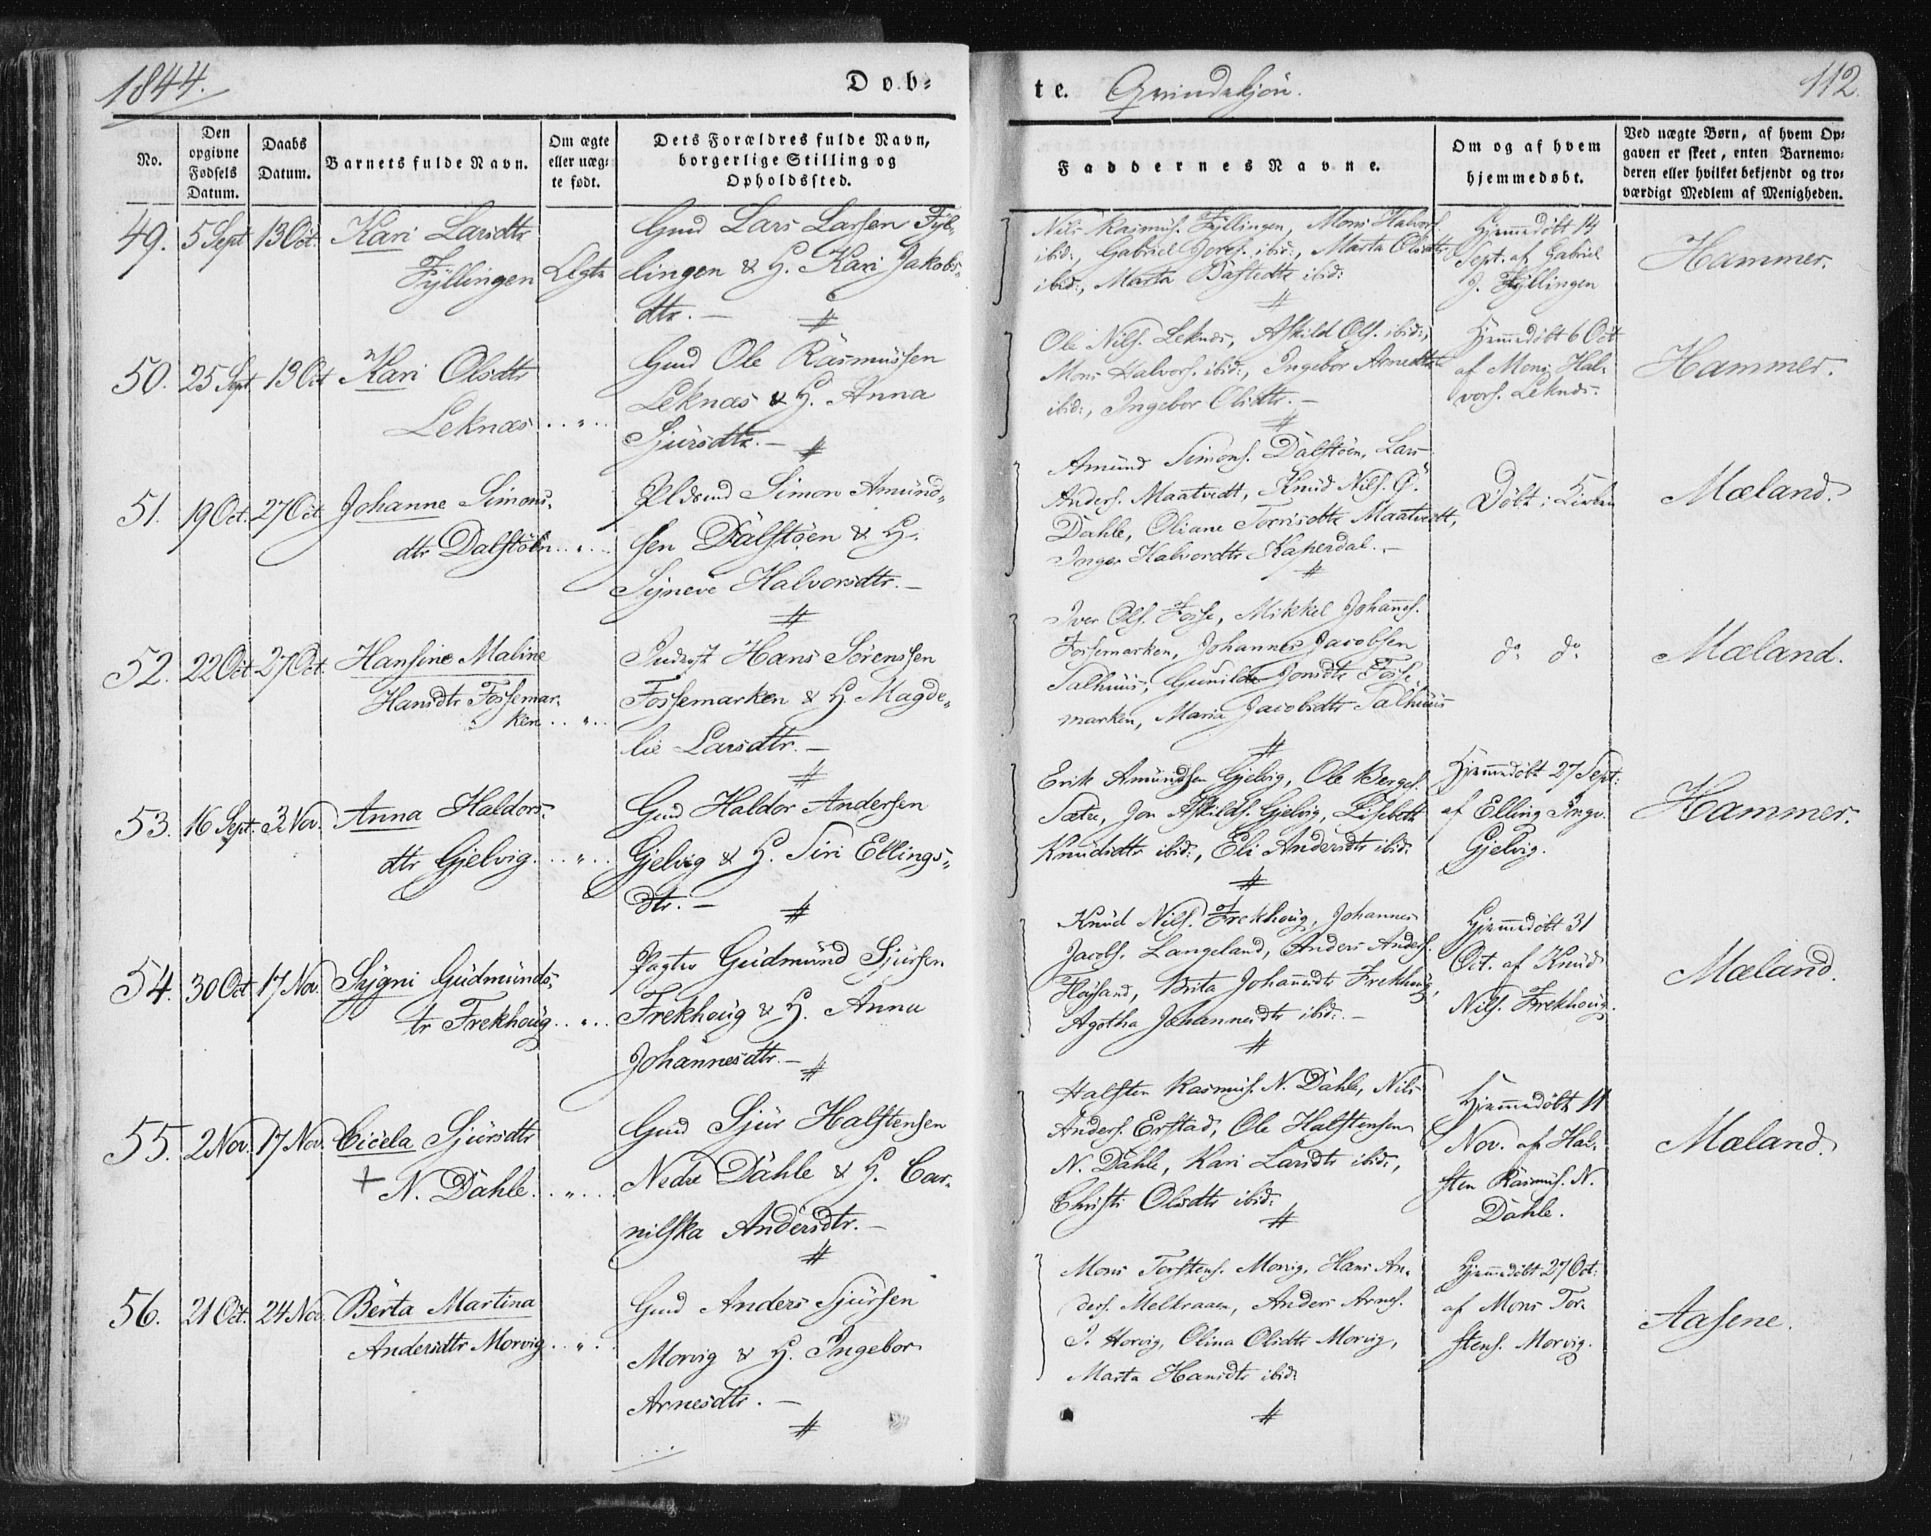 1844.
Dob-
te. Qvindekjön.
112.
No.
Den opgivne Fødsels Datum.
Daabs Datum.
Barnets fulde Navn.
Om ægte eller uægte født.
Dets Forældres fulde Navn, borgerlige Stilling og Opholdssted.
Faddernes Navne.
Om og af hvem hjemmedøbt.
Ved uægte Børn, af hvem Opgaven er skeet, enten Barnemoderen eller hvilket bekjendt og troværdigt Medlem af Menigheden.
49. 5 Sept 13 Oct. Kari Larsdtr
Fyllingen Ægte
Gmd Lars Larsen Fyl-
lingen & H. Kari Jakobs-
dtr. –
Nils Rasmus. Fyllingen, Mons Halvors.
ibid:, Gabriel Joes. ibid:, Marta Olsdtr
ibid:, Marta Båstedtr ibid:
Hjemmedöbt 14
Sept. af Gabriel
J. Fyllingen
Hammer.
50. 25 Sept. 13 Oct Kari Olsdtr
Leknæs . . „ . .
Gmd Ole Rasmussen
Leknæs & H. Anna
Sjursdtr. –
Ole Nils. Leknæs, Askild Ols. ibid:,
Mons Halvors. ibid:, Ingebor Arnedtr
ibid:, Ingebor Olsdtr. –
Hjemmedöbt 6 Oct
af Mons Hal-
vors. Leknæs.
Hammer.
51. 19 Oct. 27 Oct Johanne Simons-
dtr Dalstöen . . „ . .
Pldsmd Simon Amund-
sen Dalstöen & H.
Syneve Halvorsdtr. –
Amund Simons. Dalstöen, Lars
Anders. Maatvedt, Knud Nils. Ø.
Dahle, Oliane Torrisdtr Maatvedt,
Inger Halvordtr Kaperdal. –
Döbt i Kirken
Mæland.
52. 22 Oct 27 Oct. Hansine Maline
Hansdtr Fossemar-
ken . . „ . .
Inderst Hans Sörensen
Fossemarken & H. Magde-
lie Larsdtr. –
Iver Ols. Fosse, Mikkel Johannes.
Fossemarken, Johannes Jacobsen
Salhuus, Gunilde Jonsdtr Fosse-
marken, Maria Jacobsdtr Salhuus
do do
Mæland.
53. 16 Sept. 3 Nov. Anna Haldors-
dtr Gjelvig . . „ . .
Gmd Haldor Andersen
Gjelvig & H. Siri Ellings-
dtr. –
Erik Amundsen Gjelvig, Ole Berges.
Sætre, Jon Askilds. Gjelvig, Lisebett
Knudsdtr ibid:, Eli Andersdtr ibid:
Hjemmedöbt 27 Sept:
af Elling Ingv.
Gjelvig.
Hammer.
54. 30 Oct 17 Nov. Sygni Gudmunds-
tr Frekhoug . . „ . .
Pagter Gudmund Sjursen
Frekhoug & H. Anna
Johannesdtr. –
Knud Nils. Frekhoug, Johannes
Jacobs. Langeland, Anders Anders.
Flöjsand, Brita Johannsdtr Frekhoug,
Agotha Johannesdtr ibid: –
Hjemmedöbt 31
Oct. af Knud
Nils. Frekhoug.
Mæland.
55. 2 Nov. 17 Nov. Cicela Sjursdtr
+ N. Dahle . . „ . .
Gmd Sjur Halstensen
Nedre Dahle & H. Cor-
nilska Andersdtr. –
Halsten Rasmus. N. Dahle, Nils
Anders. Erstad, Ole Halstensen
N. Dahle, Kari Larsdtr ibid:,
Christi Olsdtr ibid:
Hjemmedöbt 11
Nov. af Hal-
sten Rasmus. N.
Dahle.
Mæland.
56. 21 Oct. 24 Nov. Berta Martina
Andersdtr Morvig . . „ . .
Gmd Anders Sjursen
Morvig & H. Ingebor
Arnesdtr. –
Mons Torstens. Morvig, Hans An-
ders. Melkraaen, Anders Arnes.
I. Horvig, Olina Olsdtr Morvig,
Marta Hansdtr ibid:
Hjemmedöbt 27 Oct:
af Mons Tor-
stens. Morvig.
Aasene.